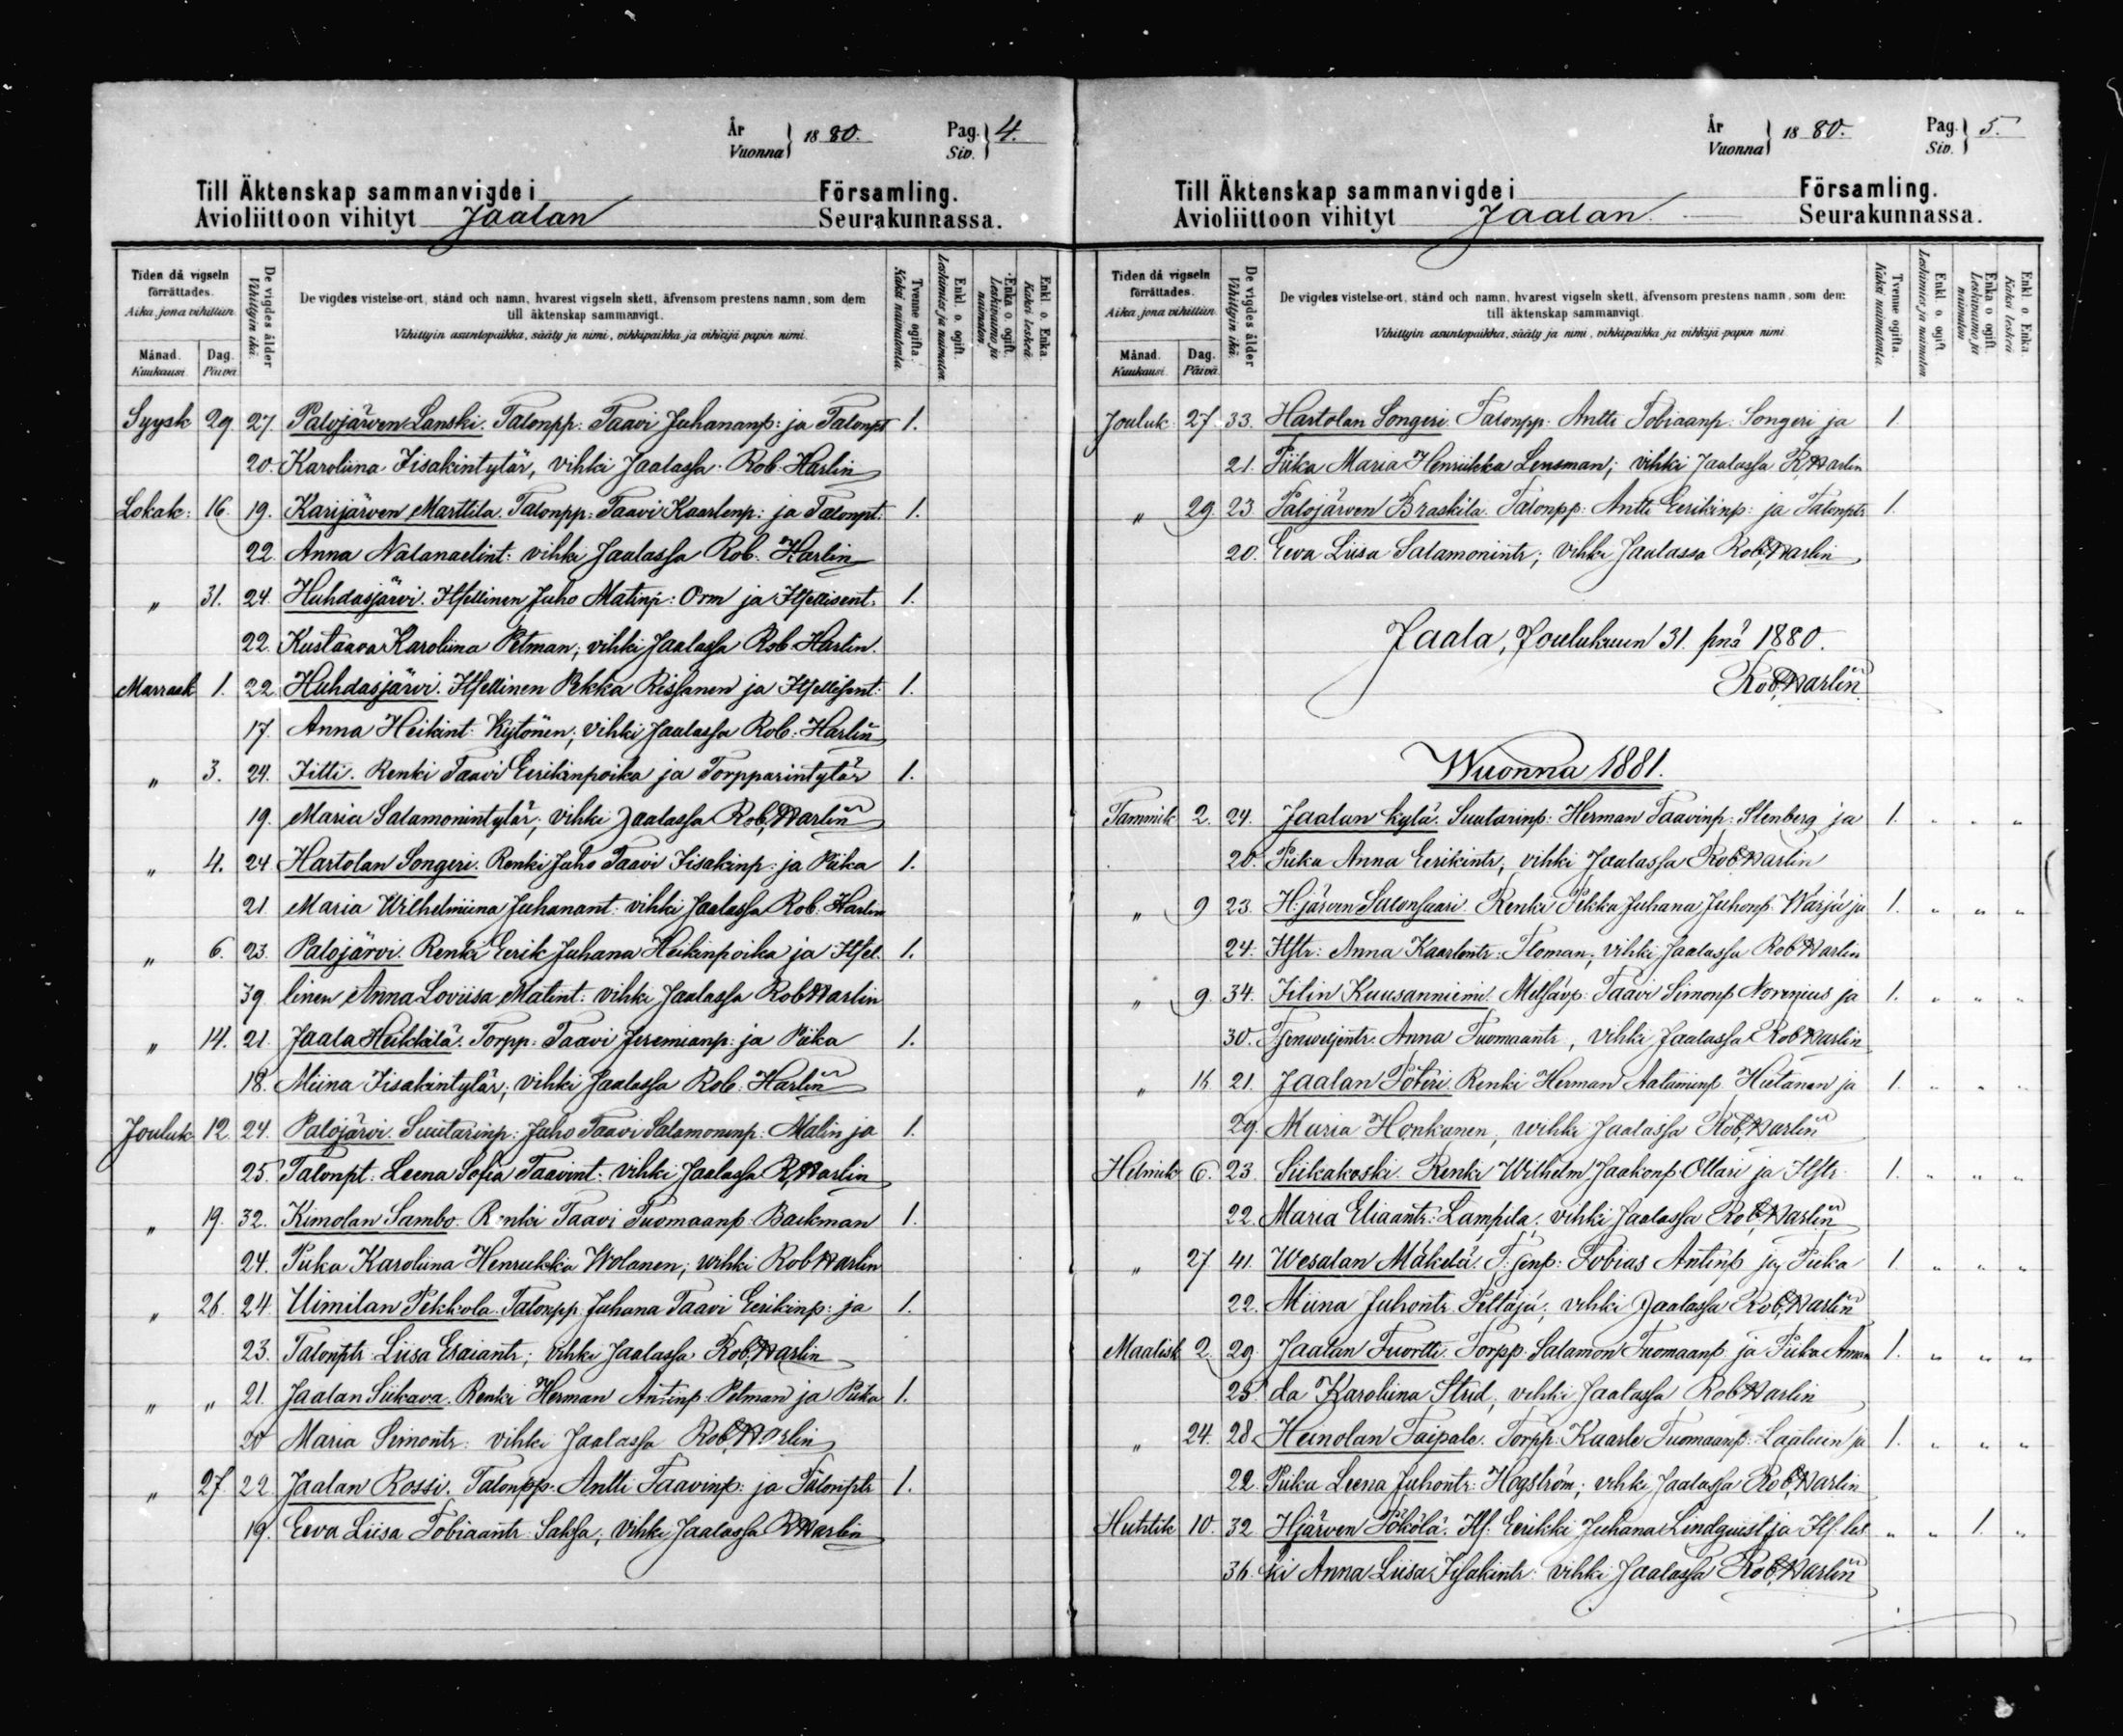 År Vuonna } 1880. Pag. Siv. } 4.
Till Äktenskap sammanvigde i Församling.
Avioliittoon vihityt Jaalan Seurakunnassa.
Tiden då vigseln förrättades. Aika, jona vihittiin.
Månad. Kuukausi. Dag. Päivä.
De vigdes ålder Vihittyin ikä.
De vigdes vistelse-ort, stånd och namn, hvarest vigseln skett, äfvensom prestens namn, som dem till äktenskap sammanvigt.
Vihittyin asuntopaikka, sääty ja nimi, vihkipaikka ja vihkijä papin nimi.
Tvenne ogifta. Kaksi naimatonta.
Enkl. o. ogift. Leskimies ja naimaton.
Enka o. ogift. Leskivaimo ja naimaton.
Enkl. o. Enka. Kaksi leskeä.
Syysk 29 27. Palojärven Lanski. Talonpp: Taavi Juhananp: ja Talonpt 1.
20. Karoliina Iisakintytär, vihki Jaalassa. Rob. Harlin
Lokak: 16. 19. Karijärven Marttila. Talonpp: Taavi Kaarlenp: ja Talonpt: 1.
22. Anna Natanaelint: vihki Jaalassa Rob. Harlin
" 31. 24. Huhdasjärvi. Itsellinen Juho Matinp: Orm ja Itsellisent: 1.
22. Kustaava Karoliina Petman; vihki Jaalassa Rob. Harlin.
Marrask 1. 22. Huhdasjärvi. Itsellinen Pekka Rissanen ja Itsellisent: 1.
17. Anna Heikint: Kytönen; vihki Jaalassa Rob. Harlin
" 3. 24. Iitti. Renki Taavi Eerikinpoika ja Torpparintytär 1.
19. Maria Salamonintytär; vihki Jaalassa Rob. Harlin
" 4. 24 Hartolan Songeri. Renki Juho Taavi Iisakinp: ja Piika 1.
21. Maria Wilhelmiina Juhanant: vihki Jaalassa Rob. Harlin
" 6. 23. Palojärvi. Renki Eerik Juhana Heikinpoika ja Itsel- 1.
39. linen Anna Loviisa Matint: vihki Jaalassa Rob Harlin
" 14. 21. Jaala Heikkilä. Torpp: Taavi Jeremianp: ja Piika 1.
18. Miina Iisakintytär; vihki Jaalassa Rob. Harlin
Jouluk 12. 24. Palojärvi. Suutarinp: Juho Taavi Salamoninp: Malin ja 1.
25. Talonpt: Leena Sofia Taavint: vihki Jaalassa R. Harlin
" 19. 32. Kimolan Sambo. Renki Taavi Tuomaanp. Backman 1.
24. Piika Karoliina Henrukka Wolanen; vihki Rob Harlin
" 26. 24. Uimilan Pekkola. Talonpp. Juhana Taavi Eerikinp: ja 1.
23. Talonptr Liisa Esaiantr; vihki Jaalassa Rob. Harlin
" " 21. Jaalan Siikava. Renki Herman Antinp. Petman ja Piika 1.
20 Maria Simontr: vihki Jaalassa Rob. Harlin
" 27. 22. Jaalan Rossi. Talonpp. Antti Taavinp: ja Talonptr 1.
19. Eeva Liisa Tobiaantr: Saksa, vihki Jaalassa R Harlin
År Vuonna } 1880. Pag. Siv. } 5.
Till Äktenskap sammanvigde i Församling.
Avioliittoon vihityt Jaalan Seurakunnassa.
Tiden då vigseln förrättades. Aika, jona vihittiin.
Månad. Kuukausi. Dag. Päivä.
De vigdes ålder Vihittyin ikä.
De vigdes vistelse-ort, stånd och namn, hvarest vigseln skett, äfvensom prestens namn, som dem till äktenskap sammanvigt.
Vihittyin asuntopaikka, sääty ja nimi, vihkipaikka ja vihkijä papin nimi.
Tvenne ogifta. Kaksi naimatonta.
Enkl. o. ogift. Leskimies ja naimaton.
Enka o ogift. Leskivaimo ja naimaton
Enkl. o. Enka. Kaksi leskeä
Jouluk 27. 33. Hartolan Songeri. Talonpp. Antti Tobiaanp. Songeri ja 1.
21. Piika Maria Henriikka Lensman; vihki Jaalassa R. Harlin
" 29. 23 Palojärven Braskila. Talonpp. Antti Eerikinp: ja Talonptr 1.
20. Eeva Liisa Salamonintr; vihki Jaalassa Rob. Harlin
Jaala, Joulukuun 31. pnä 1880.
Rob. Harlin.
Wuonna 1881.
Tammik 2. 24. Jaalan kylä. Suutarinp: Herman Taavinp: Stenberg ja 1. " " "
20. Piika Anna Eerikintr; vihki Jaalassa Rob Harlin
" 9 23. H:järven Salonsaari. Renki Pekka Juhana Juhonp. Warja ja 1. " " "
24. Itstr: Anna Kaarlentr: Floman; vihki Jaalassa Rob Harlin
" 9. 34. Iitin Kuusanniemi. Taavi Simonp Norenius ja 1. " " "
30. Anna Tuomaantr, vihki Jaalassa Rob Harlin
" 16 21. Jaalan Pötöri. Renki Herman Aataminp. Hietanen ja 1. " " "
29. Maria Honkanen, vihki Jaalassa Rob. Harlin
Helmik 6. 23. Siikakoski. Renki Wilhelm Jaakonp Ollari ja Itstr 1. " " "
22. Maria Eliaantr: Lampila; vihki Jaalassa Rob. Harlin
" 27 41. Wesalan Mäkelä. Tobias Antinp ja Piika 1. " " "
22. Miina Juhontr. Peltäjä; vihki Jaalassa Rob. Harlin
Maalisk 2. 29. Jaalan Tuortti. Torpp. Salamon Tuomaanp ja Piika Aman 1. " " "
25. da Karoliina Strid, vihki Jaalassa Rob Harlin
" 24. 28. Heinolan Taipale. Torpp. Kaarle Tuomaanp: ja 1. " " "
22. Piika Leena Juhontr: Hogström; vihki Jaalassa Rob. Harlin
Huhtik 10. 32. Hjärven Pökölä. Its: Eerikki Juhana Lindquist ja Its: les " " 1. "
36. ki Anna Liisa Iisakintr: vihki Jaalassa Rob. Harlin